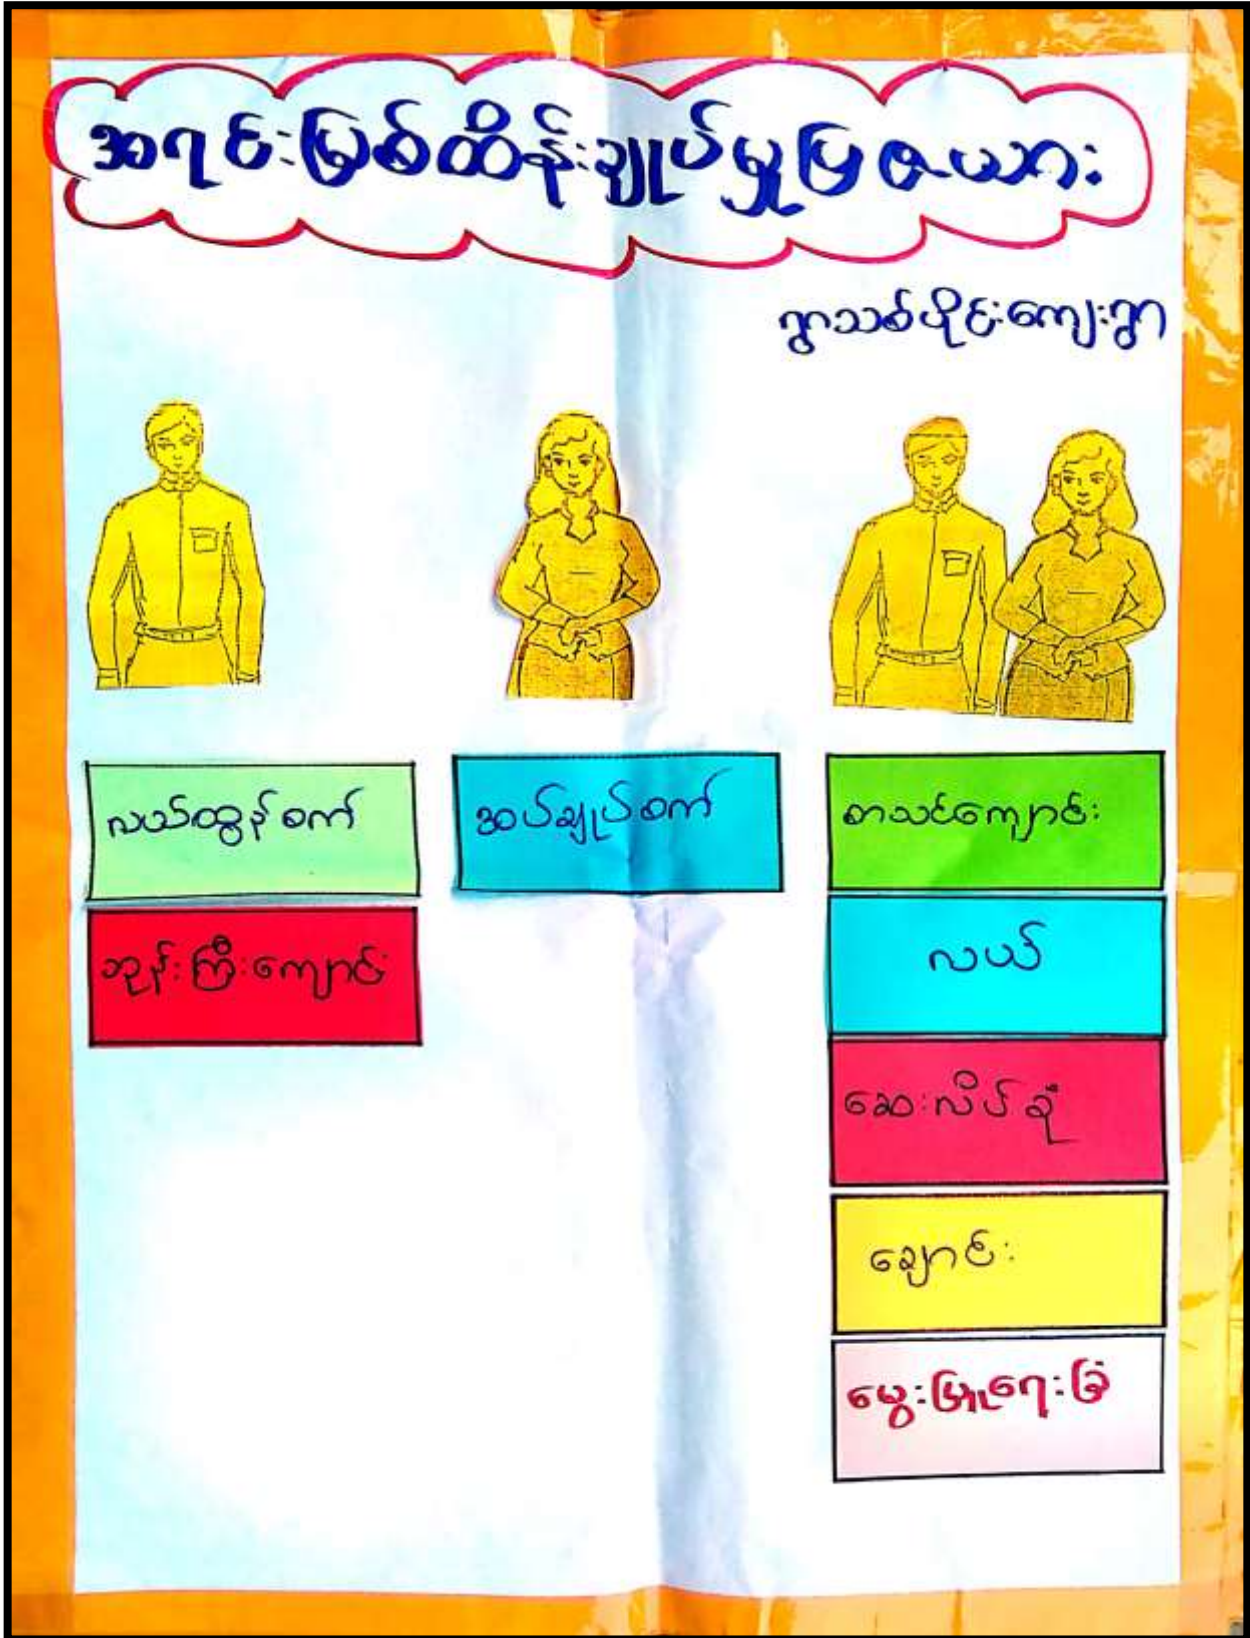 အရင်းမြစ်ထိန်းချုပ်မှုပြဇယား
ရွာသစ်ပိုင်းကျေးရွာ
လယ်ထွန်စက်
ဘုန်းကြီးကျောင်း
အပ်ချုပ်စက်
စာသင်ကျောင်း
လယ်
ဆေးလိပ်ခုံ
ချောင်း
မွေးမြူရေးခြံ